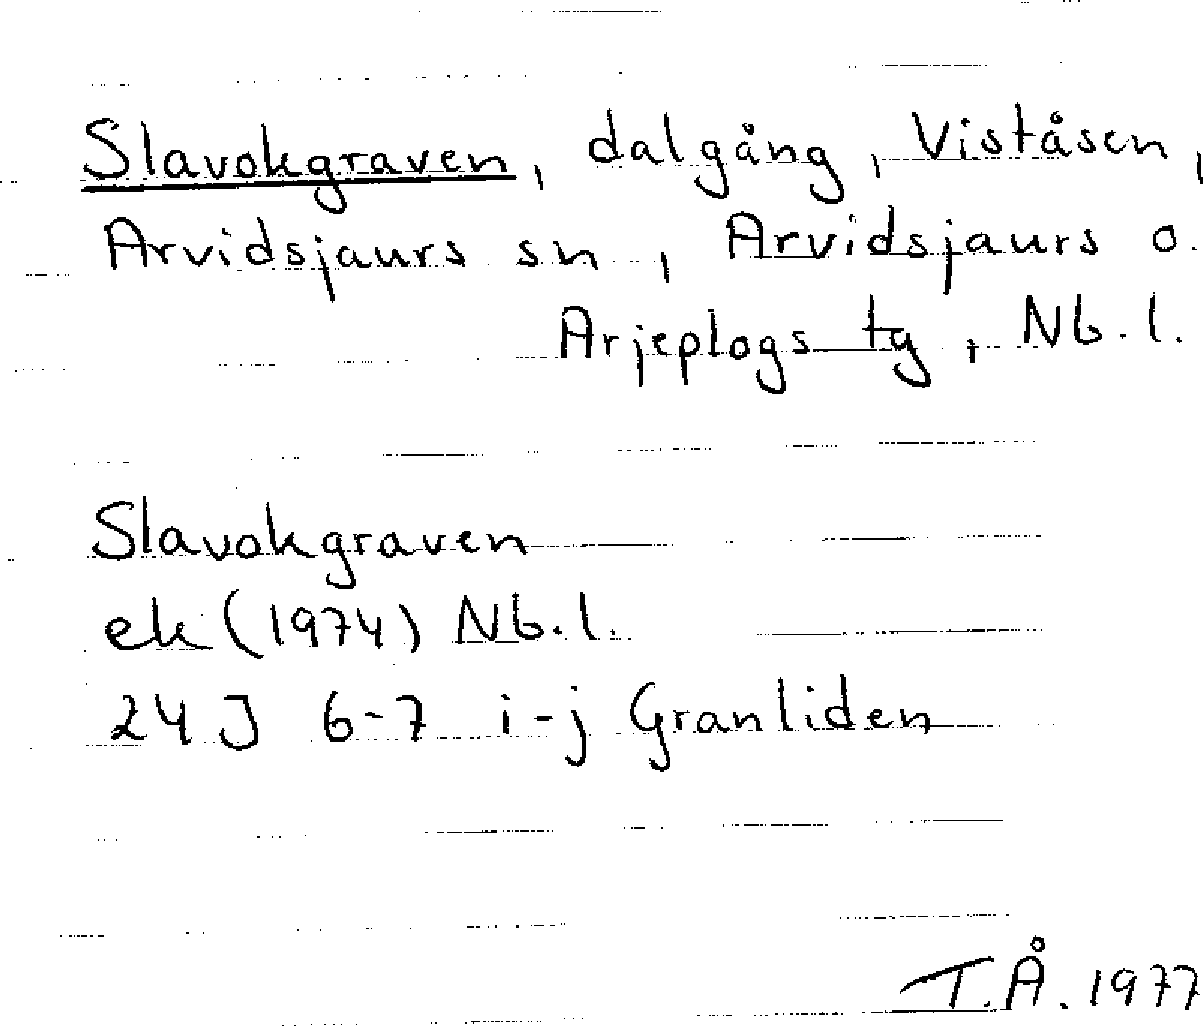 Slavokgraven, dalgång, Viståsen,
Arvidsjaurs sn, Arvidsjaurs o.
Arjeplogs tg, Nb.l.
Slavokgraven
ek (1974) Nb.l.
24J 6-7 i-j Granliden
T.Å. 1977